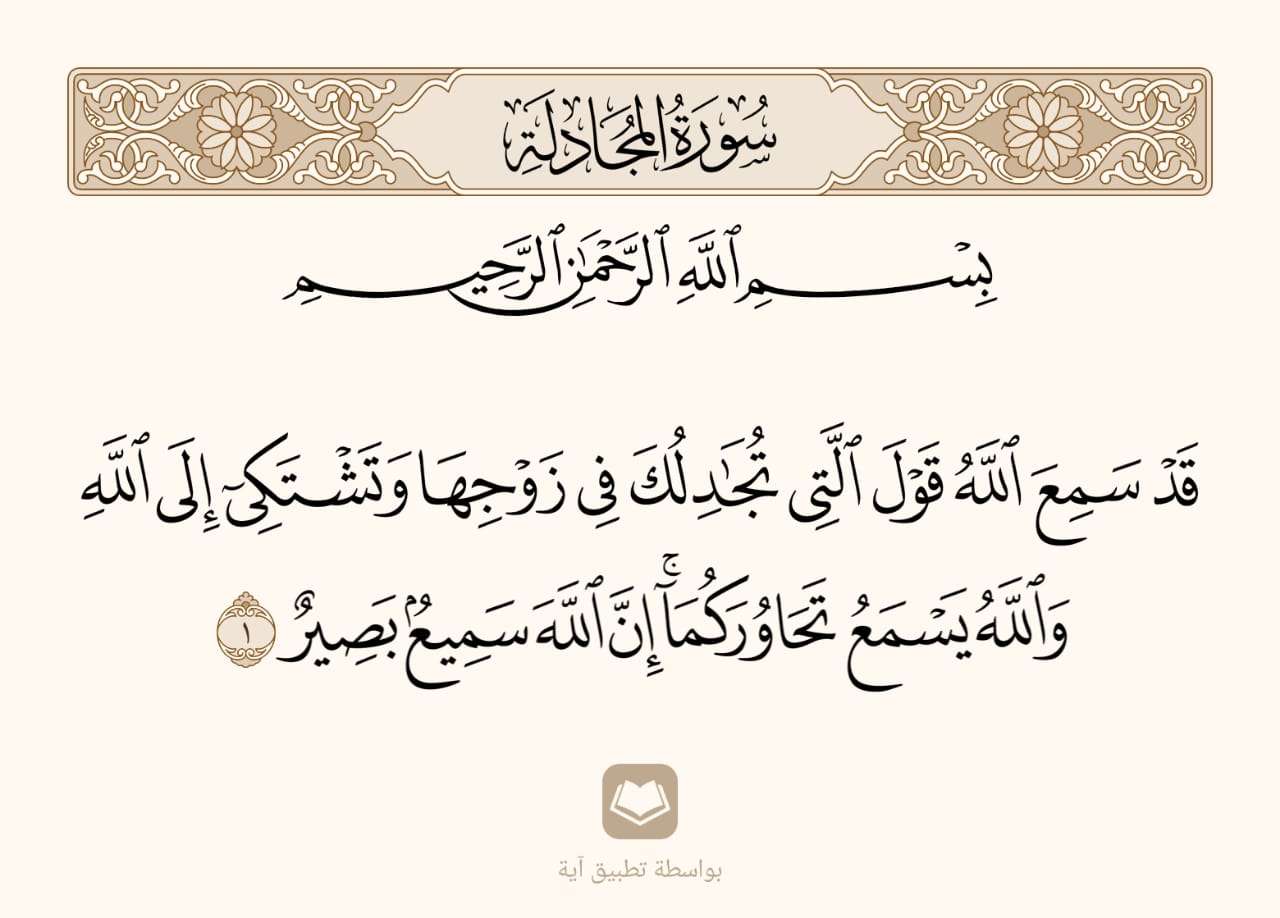 سُورَةُ المُجَادلَةِ
بِسْمِ ٱللَّهِ ٱلرَّحْمَٰنِ ٱلرَّحِيمِ
قَدْ سَمِعَ ٱللَّهُ قَوْلَ ٱلَّتِى تُجَٰدِلُكَ فِى زَوْجِهَا وَتَشْتَكِىٓ إِلَى ٱللَّهِ
وَٱللَّهُ يَسْمَعُ تَحَاوُرَكُمَآ ۚ إِنَّ ٱللَّهَ سَمِيعٌۢ بَصِيرٌ ١
بواسطة تطبيق آية